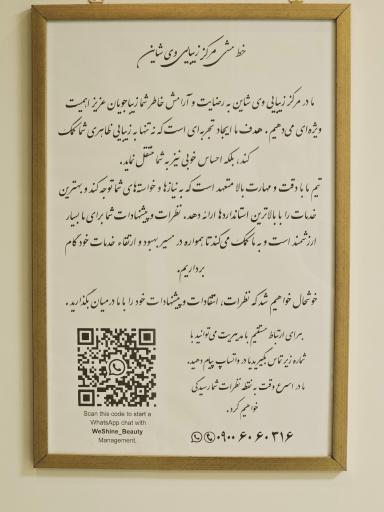 خط مشی مرکز زیبایی وی شاین
ما در مرکز زیبایی وی شاین به رضایت و آرامش خاطر شما زیباجویان عزیز اهمیت
ویژه‌ای می‌دهیم. هدف ما ایجاد تجربه‌ای است که نه تنها به زیبایی ظاهری شما کمک
کند، بلکه احساس خوبی نیز به شما منتقل نماید.
تیم ما با دقت و مهارت بالا متعهد است که به نیازها و خواسته‌های شما توجه کند و بهترین
خدمات را با بالاترین استانداردها ارائه دهد. نظرات و پیشنهادات شما برای ما بسیار
ارزشمند است و به ما کمک می‌کند تا همواره در مسیر بهبود و ارتقاء خدمات خود گام
برداریم.
خوشحال خواهیم شد که نظرات، انتقادات و پیشنهادات خود را با ما درمیان بگذارید.
برای ارتباط مستقیم با مدیریت می‌توانید با
شماره زیر تماس بگیرید یا در واتساپ پیام دهید.
ما در اسرع وقت به نقطه نظرات شما رسیدگی
خواهیم کرد.
۰۹۰۰ ۶۰ ۶۰ ۳۱۶
Scan this code to start a
WhatsApp chat with
WeShine_Beauty
Management.